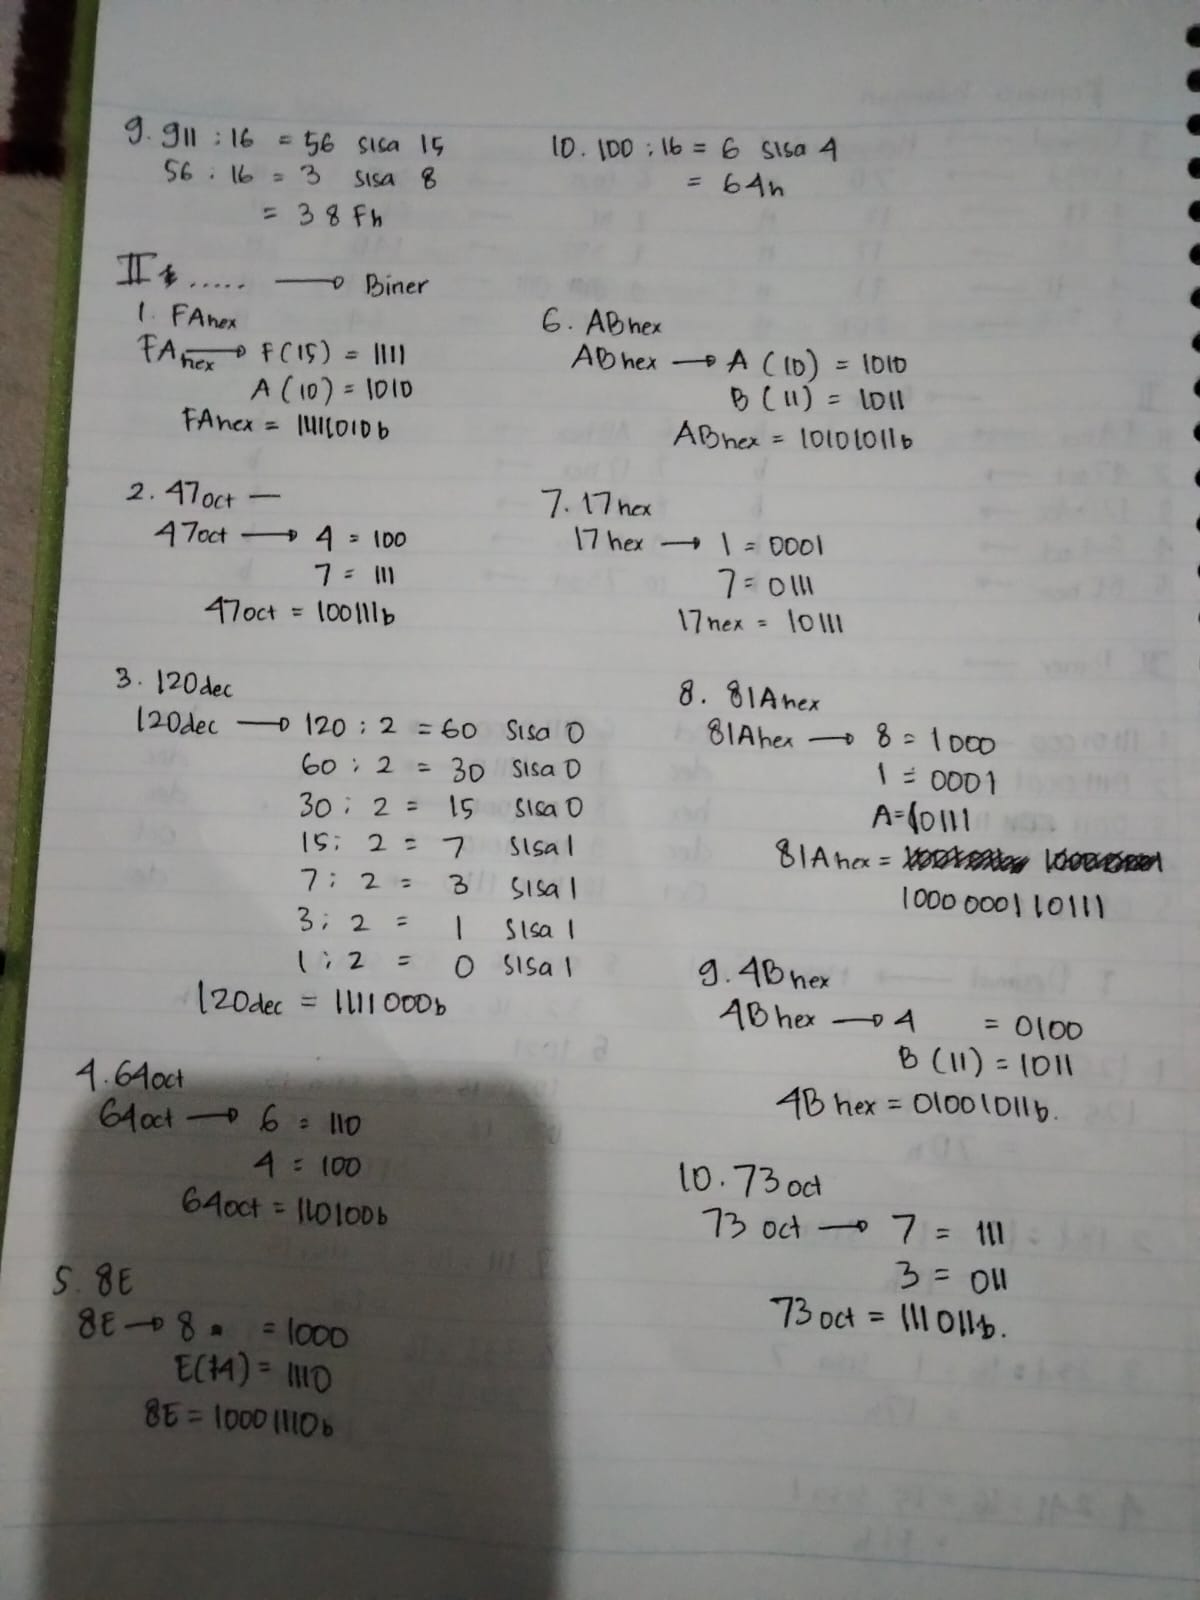 9. 911 : 16 = 56 sisa 15
56 : 16 = 3 sisa 8
= 38Fh
10. 100 : 16 = 6 sisa 4
= 64h
II ..... → Biner
1. FAhex
FAhex → F(15) = 1111
A(10) = 1010
FAhex = 11111010b
2. 47oct —
47oct → 4 = 100
7 = 111
47oct = 100111b
3. 120dec
120dec → 120 : 2 = 60 sisa 0
60 : 2 = 30 sisa 0
30 : 2 = 15 sisa 0
15 : 2 = 7 sisa 1
7 : 2 = 3 sisa 1
3 : 2 = 1 sisa 1
1 : 2 = 0 sisa 1
120dec = 1111000b
4. 64oct
64oct → 6 = 110
4 = 100
64oct = 110100b
5. 8E
8E → 8 = 1000
E(14) = 1110
8E = 10001110b
6. ABhex
ABhex → A(10) = 1010
B(11) = 1011
ABhex = 10101011b
7. 17hex
17hex → 1 = 0001
7 = 0111
17hex = 10111
8. 81Ahex
81Ahex → 8 = 1000
1 = 0001
A = 10111
81Ahex =
1000000110111
9. 4Bhex
4Bhex → 4 = 0100
B(11) = 1011
4Bhex = 01001011b.
10. 73oct
73oct → 7 = 111
3 = 011
73oct = 111011b.